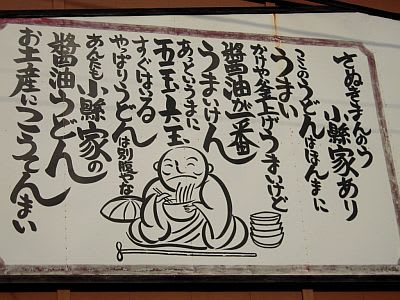 さぬきまんのう
小縣家あり
ここのうどんはほんまに
うまい
かけや釜上げうまいけど
醤油が一番
うまいけん
あっというまに
五玉六玉
すぐはいる
やっぱりうどんは別腹やな
あんたも小縣家の
醤油うどん
お土産にこうてんまい